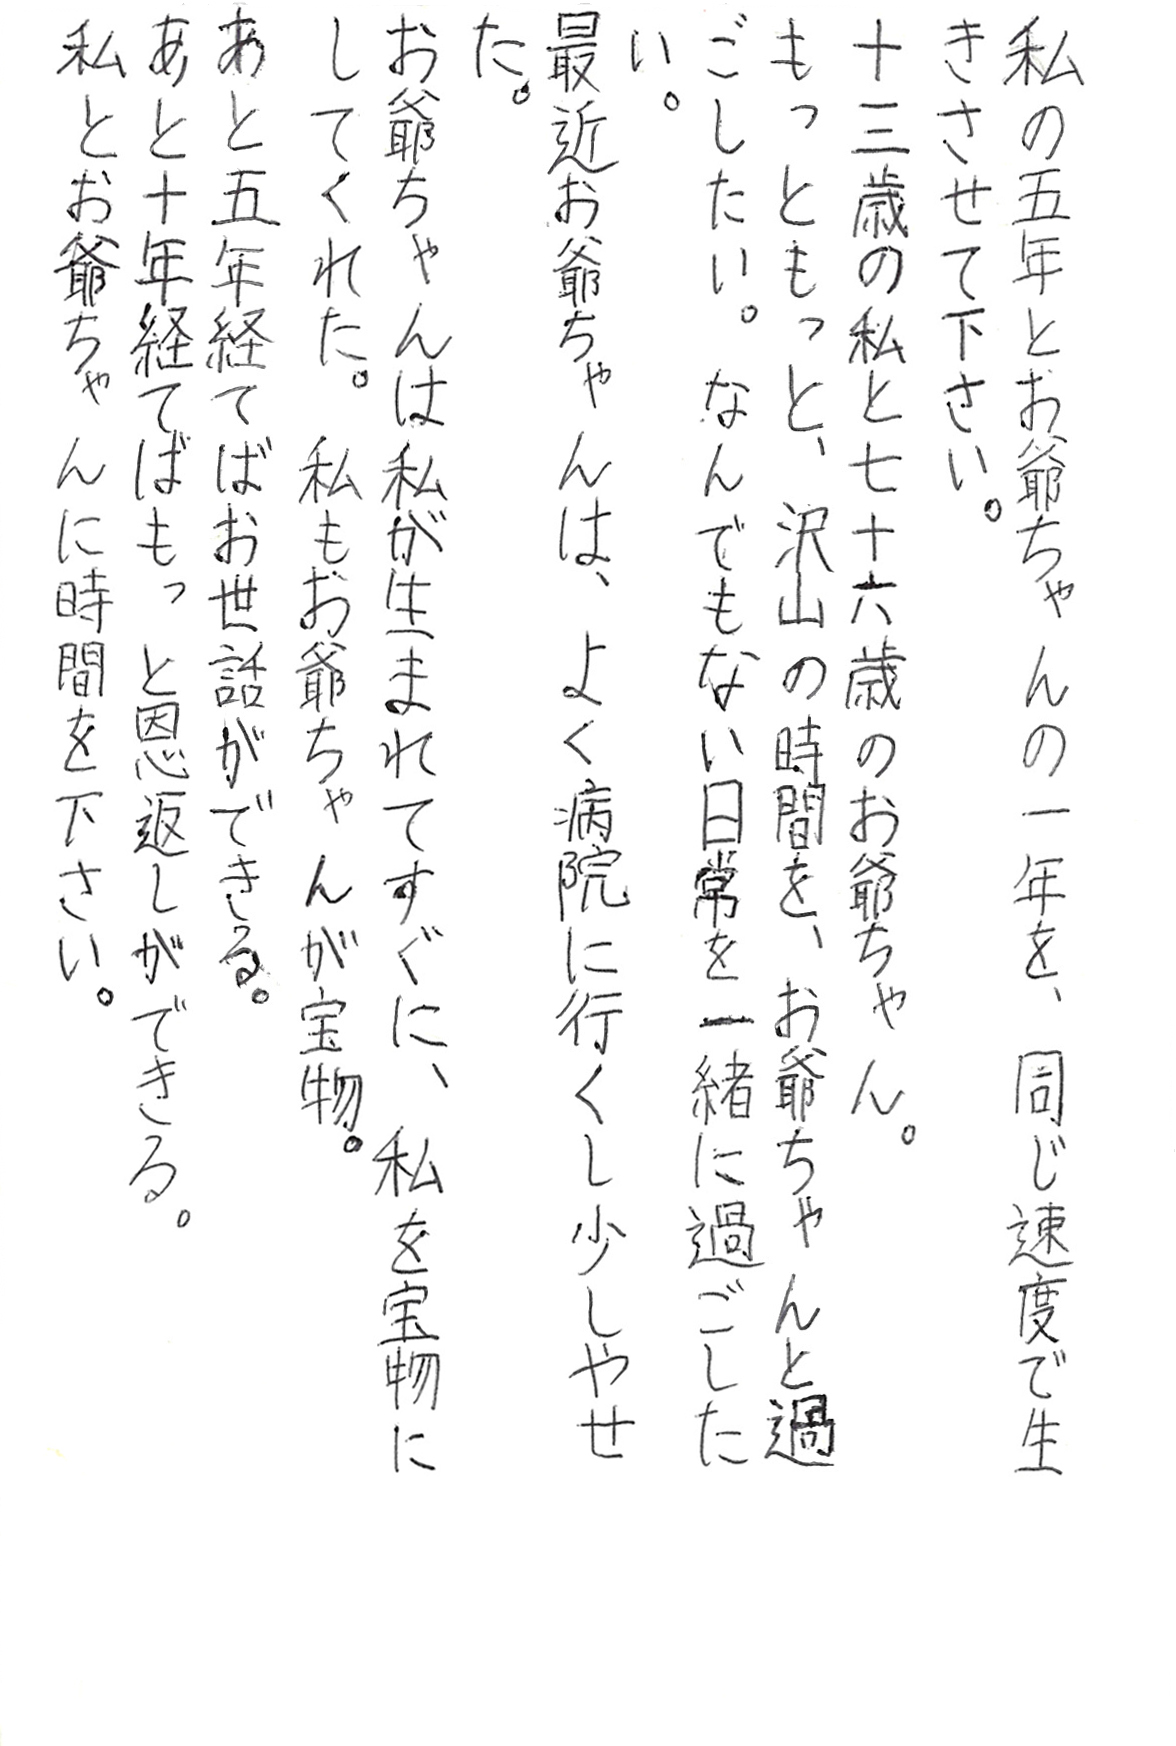 私の五年とお爺ちゃんの一年を、同じ速度で生
きさせて下さい。
十三歳の私と七十六歳のお爺ちゃん。
もっともっと、沢山の時間を、お爺ちゃんと過
ごしたい。なんでもない日常を一緒に過ごした
い。
最近お爺ちゃんは、よく病院に行くし少しやせ
た。
お爺ちゃんは私が生まれてすぐに、私を宝物に
してくれた。私もお爺ちゃんが宝物。
あと五年経てばお世話ができる。
あと十年経てばもっと恩返しができる。
私とお爺ちゃんに時間を下さい。